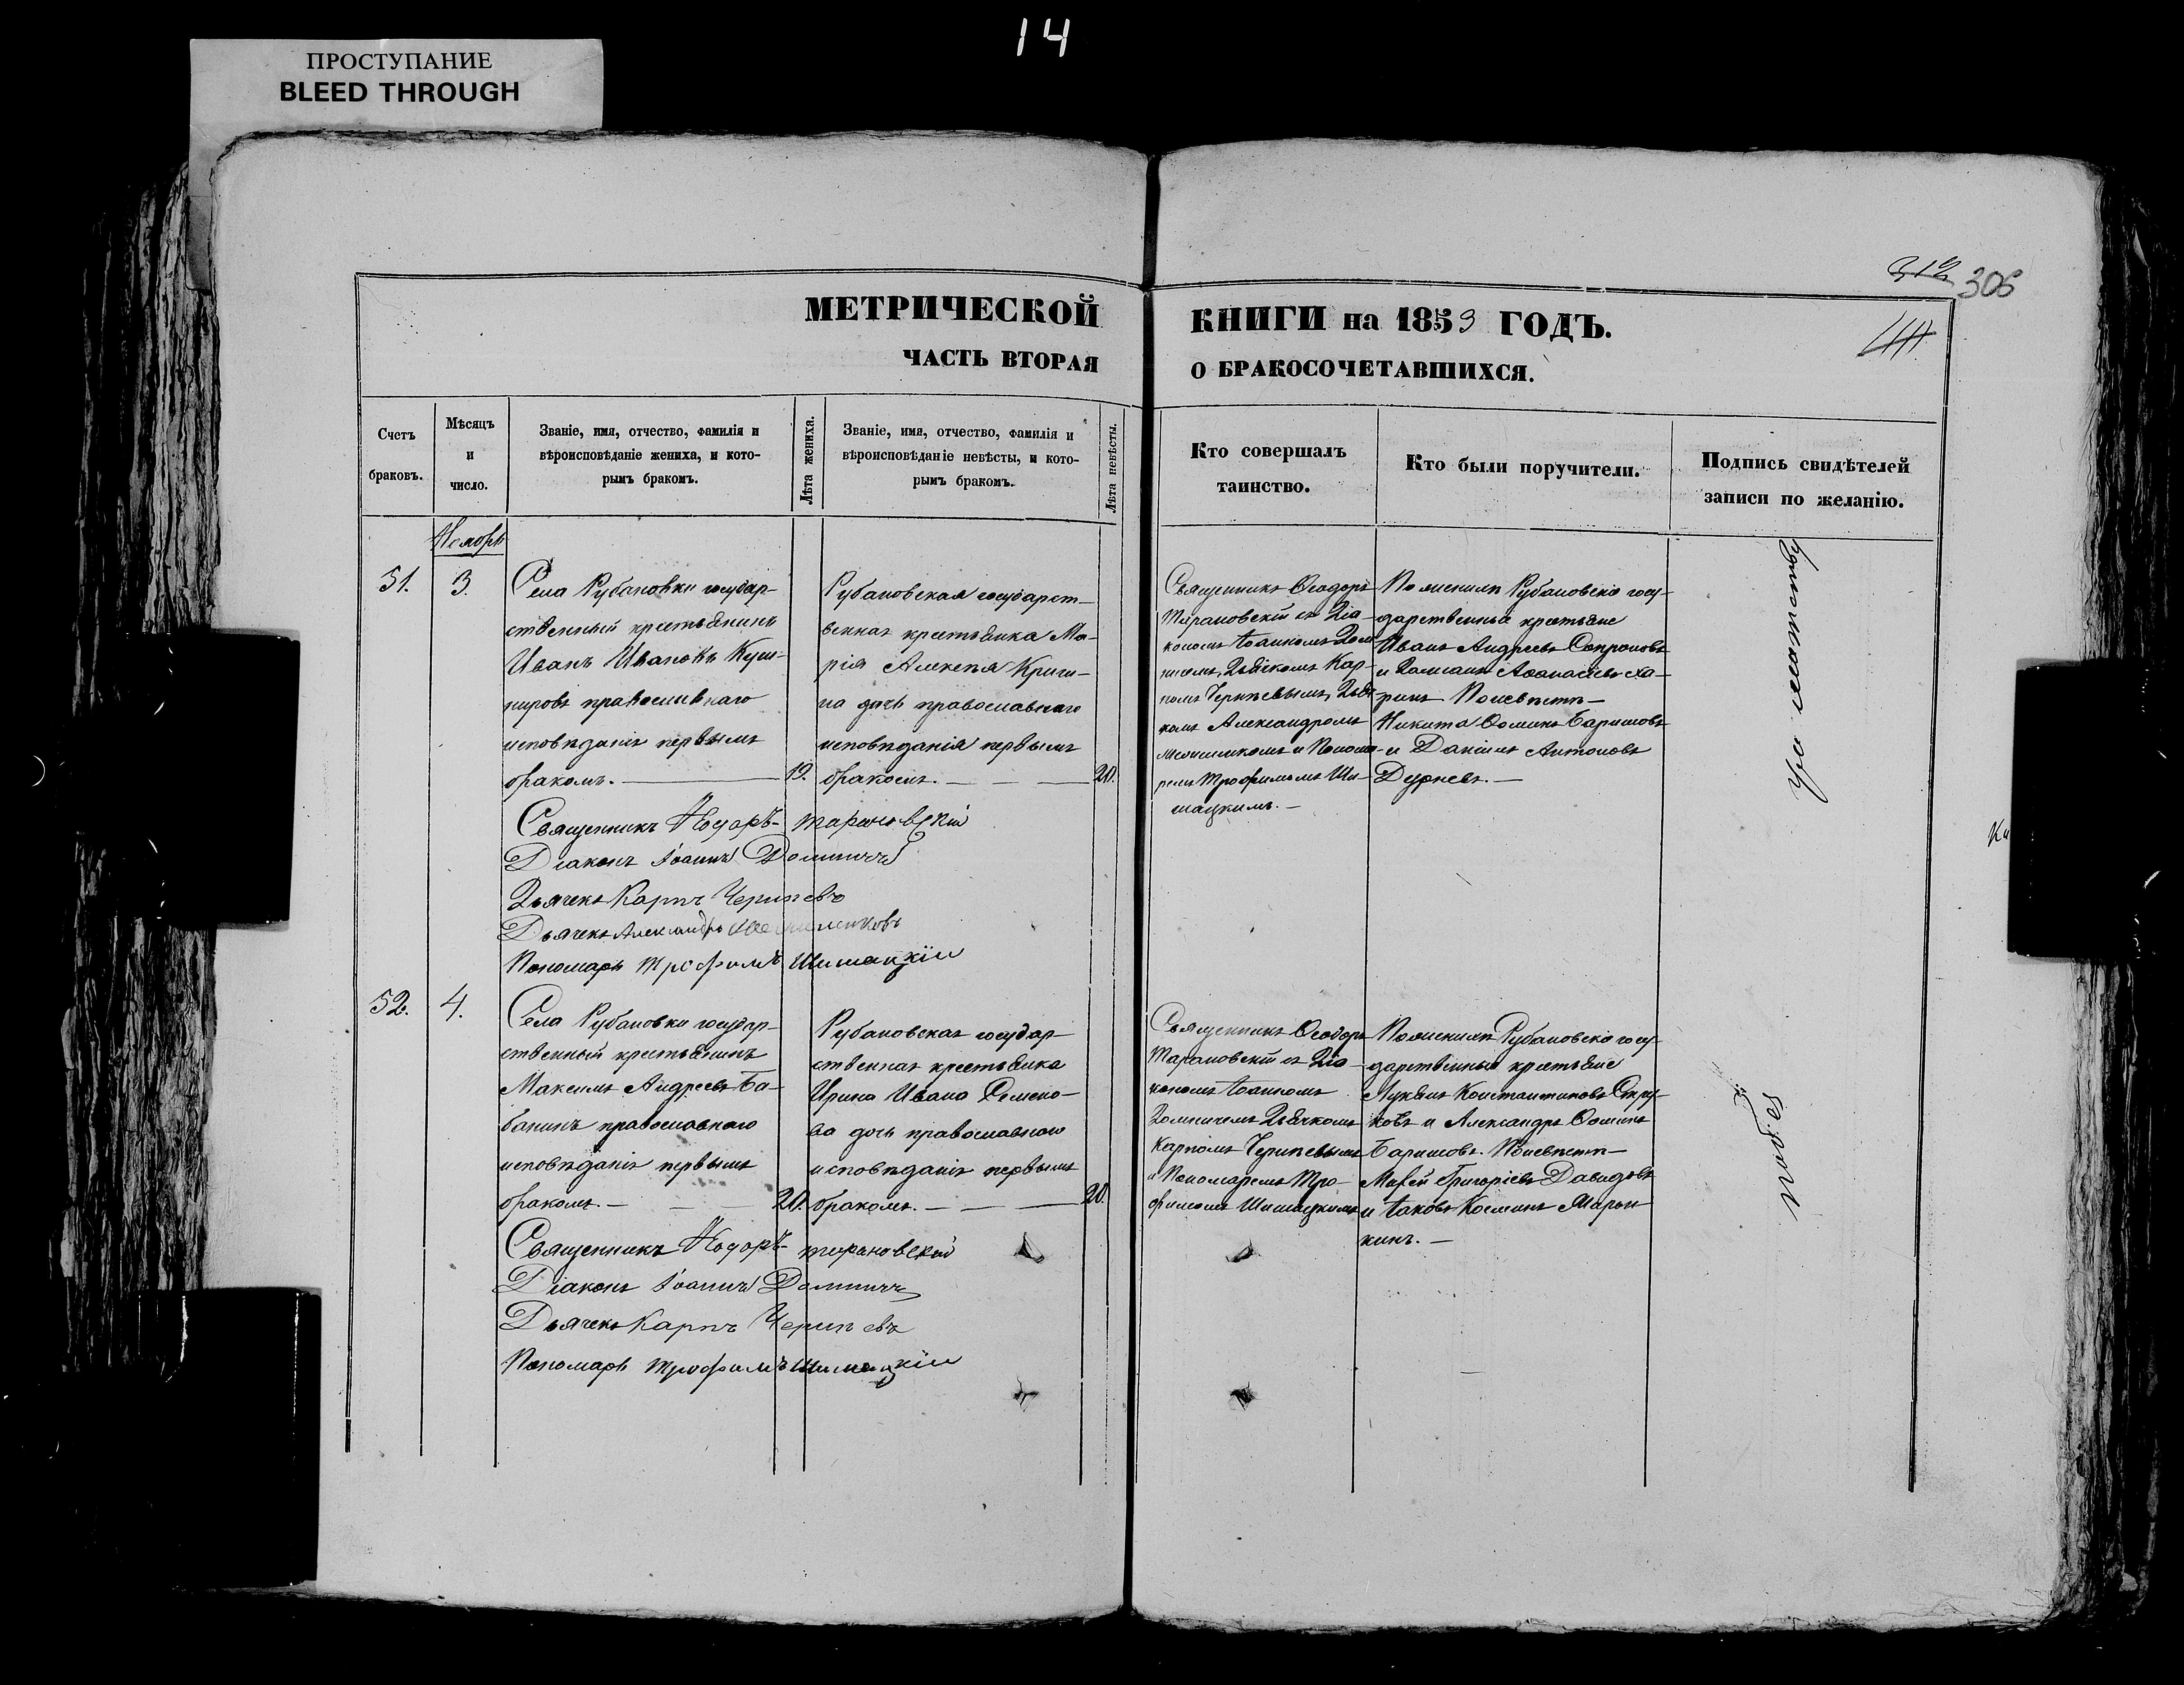 14
ПРОСТУПАНИЕ
BLEED THROUGH
312 306
МЕТРИЧЕСКОЙ КНИГИ на 1853 ГОДЪ.
ЧАСТЬ ВТОРАЯ О БРАКОСОЧЕТАВШИХСЯ.
Счетъ
браковъ.
Мѣсяцъ
и
число.
Званіе, имя, отчество, фамилія и
вѣроисповѣданіе жениха, и кото-
рымъ бракомъ.
Лѣта жениха.
Званіе, имя, отчество, фамилія и
вѣроисповѣданіе невѣсты, и кото-
рымъ бракомъ.
Лѣта невѣсты.
Кто совершалъ
таинство.
Кто были поручители.
Подпись свидѣтелей
записи по желанію.
Ноябрь
51.
3.
Села Рубановки государ-
ственный крестьянинъ
Иванъ Ивановъ Куш-
нировъ православнаго
исповѣданія первымъ
бракомъ. —
19.
Рубановская государст-
венная крестьянка Ма-
рія Алексѣя
на дочь православнаго
исповѣданія первымъ
бракомъ. —
20.
Священникъ Ѳеодоръ
Тарановскій съ Діа-
кономъ Іоанномъ Дом-
ничемъ, Дьячкомъ Кар-
помъ Черипевымъ, Дьяч-
комъ Александромъ
и Понома-
ремъ Трофимомъ Ши-
шацкимъ. —
По женихѣ Рубановскіе госу-
дарственные крестьяне
Иванъ Андреевъ Сопроновъ
и Аѳанасіевъ
По невѣстѣ —
Никита Ѳоминъ Баришовъ
и Даніилъ Антоновъ
Дурневъ. —
Священникъ Ѳеодоръ Тарановскій
Діаконъ Іоаннъ Домничъ
Дьячекъ Карпъ Черипевъ
Дьячекъ Александръ
Пономарь Трофимъ Шишацкій
52.
4.
Села Рубановки государ-
ственный крестьянинъ
Максимъ Андреевъ Ба-
банинъ православнаго
исповѣданія первымъ
бракомъ. —
20.
Рубановская государ-
ственная крестьянка
Ирина Ивана Семено-
ва дочь православнаго
исповѣданія первымъ
бракомъ. —
20.
Священникъ Ѳеодоръ
Тарановскій съ Діа-
кономъ Іоанномъ
Домничемъ Дьячкомъ
Карпомъ Черипевымъ
и Пономаремъ Тро-
фимомъ Шишацкимъ
По женихѣ Рубановскіе госу-
дарственные крестьяне
Лукьянъ Константиновъ Стру-
ковъ и Александръ Ѳоминъ
Баришовъ. По невѣстѣ —
Маѳей Григоріевъ Давидовъ
и Іаковъ Косминъ Марон-
кинъ. —
Священникъ Ѳеодоръ Тарановскій
Діаконъ Іоаннъ Домничъ
Дьячекъ Карпъ Черипевъ
Пономарь Трофимъ Шишацкій